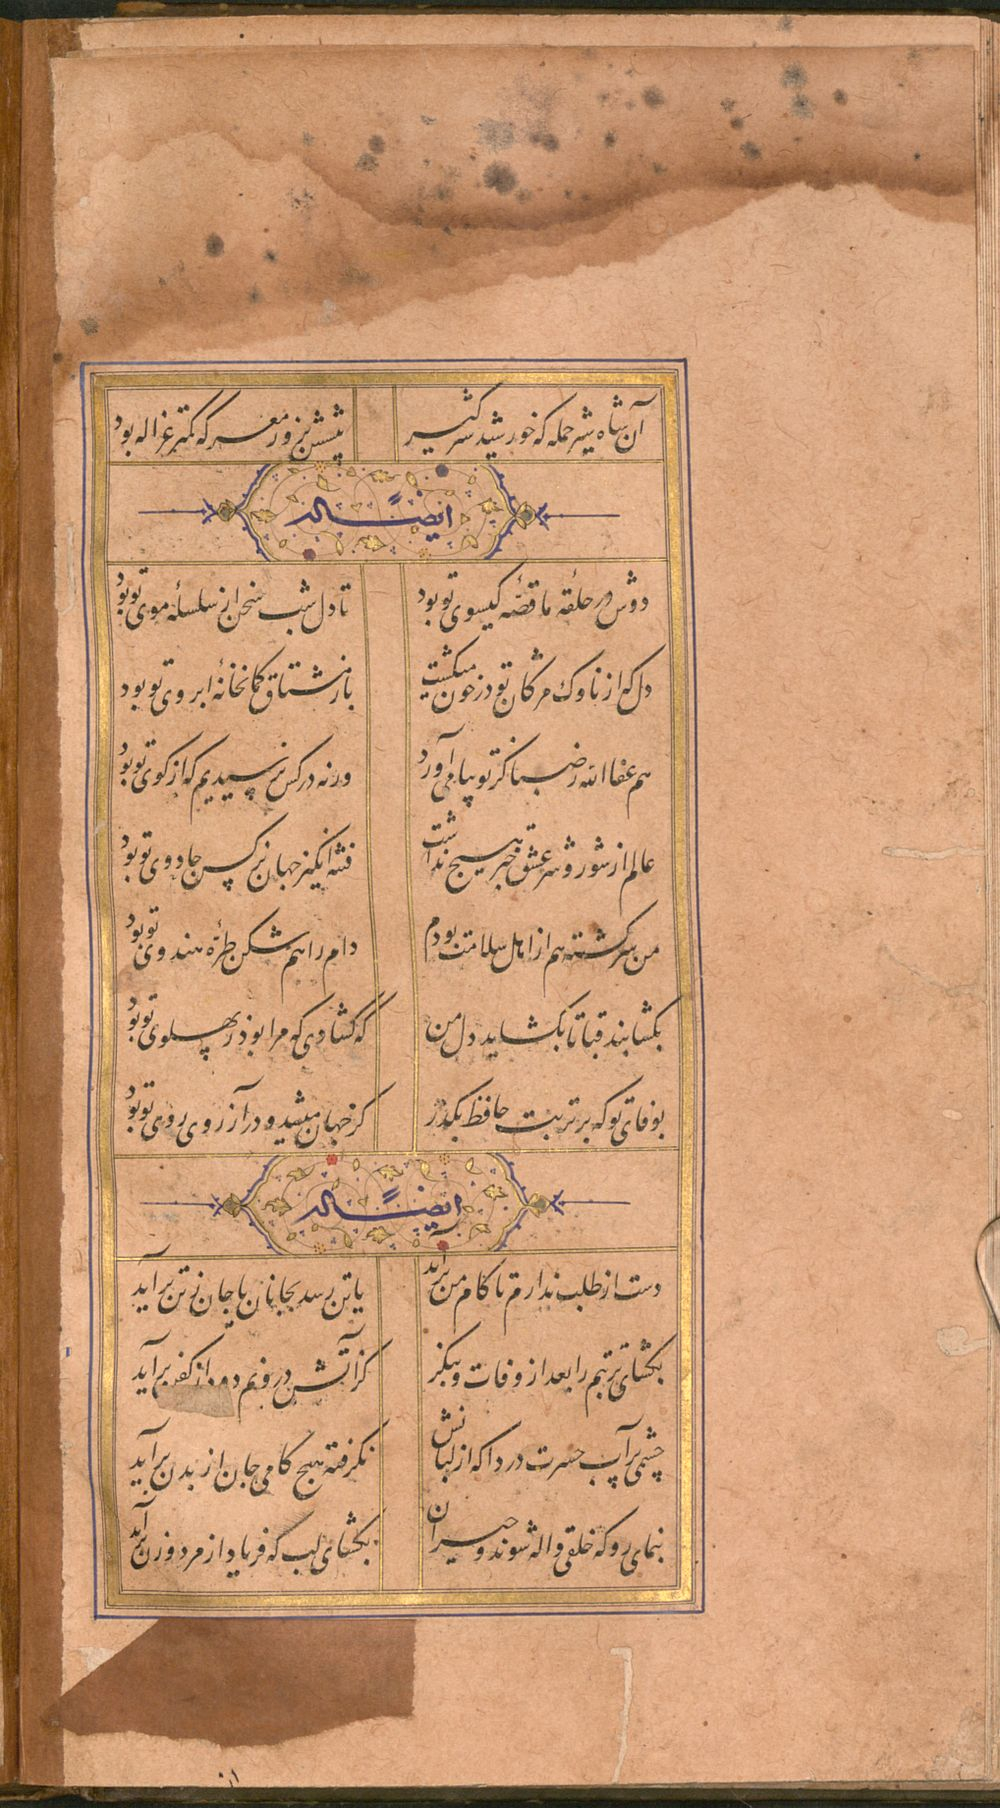 آن شاه شیر حمله که خورشید شیرگیر
پیشش بروز معرکه کمتر غزاله بود
ایضاً له
دوش در حلقه ما قصّه گیسوی تو بود
تا دل شب سخن از سلسلهٔ موی تو بود
دل که از ناوک مژگان تو در خون میگشت
باز مشتاق کمانخانهٔ ابروی تو بود
هم عفا الله ز صبا کز تو پیامی آورد
ورنه در کس نرسیدیم که از کوی تو بود
عالم از شور و شر عشق خبر هیچ نداشت
فتنه انگیز جهان نرگس جادوی تو بود
من سرگشته هم از اهل سلامت بودم
دام راهم شکن طرّه هندوی تو بود
بگشا بند قبا تا بگشاید دل من
که گشادی که مرا بود ز پهلوی تو بود
بوفای تو که بر تربت حافظ بگذر
کز جهان میشد و در آرزوی روی تو بود
ایضاً له
دست از طلب ندارم تا کام من برآید
یا تن رسد بجانان یا جان ز تن برآید
بگشای تربتم را بعد از وفات و بنگر
کز آتش درونم دود از کفن برآید
چشمی پر آب حسرت دردا که از لبانش
نگرفته هیچ کامی جان از بدن برآید
بنمای رو که خلقی واله شوند و حیران
بگشای لب که فریاد از مرد و زن برآید